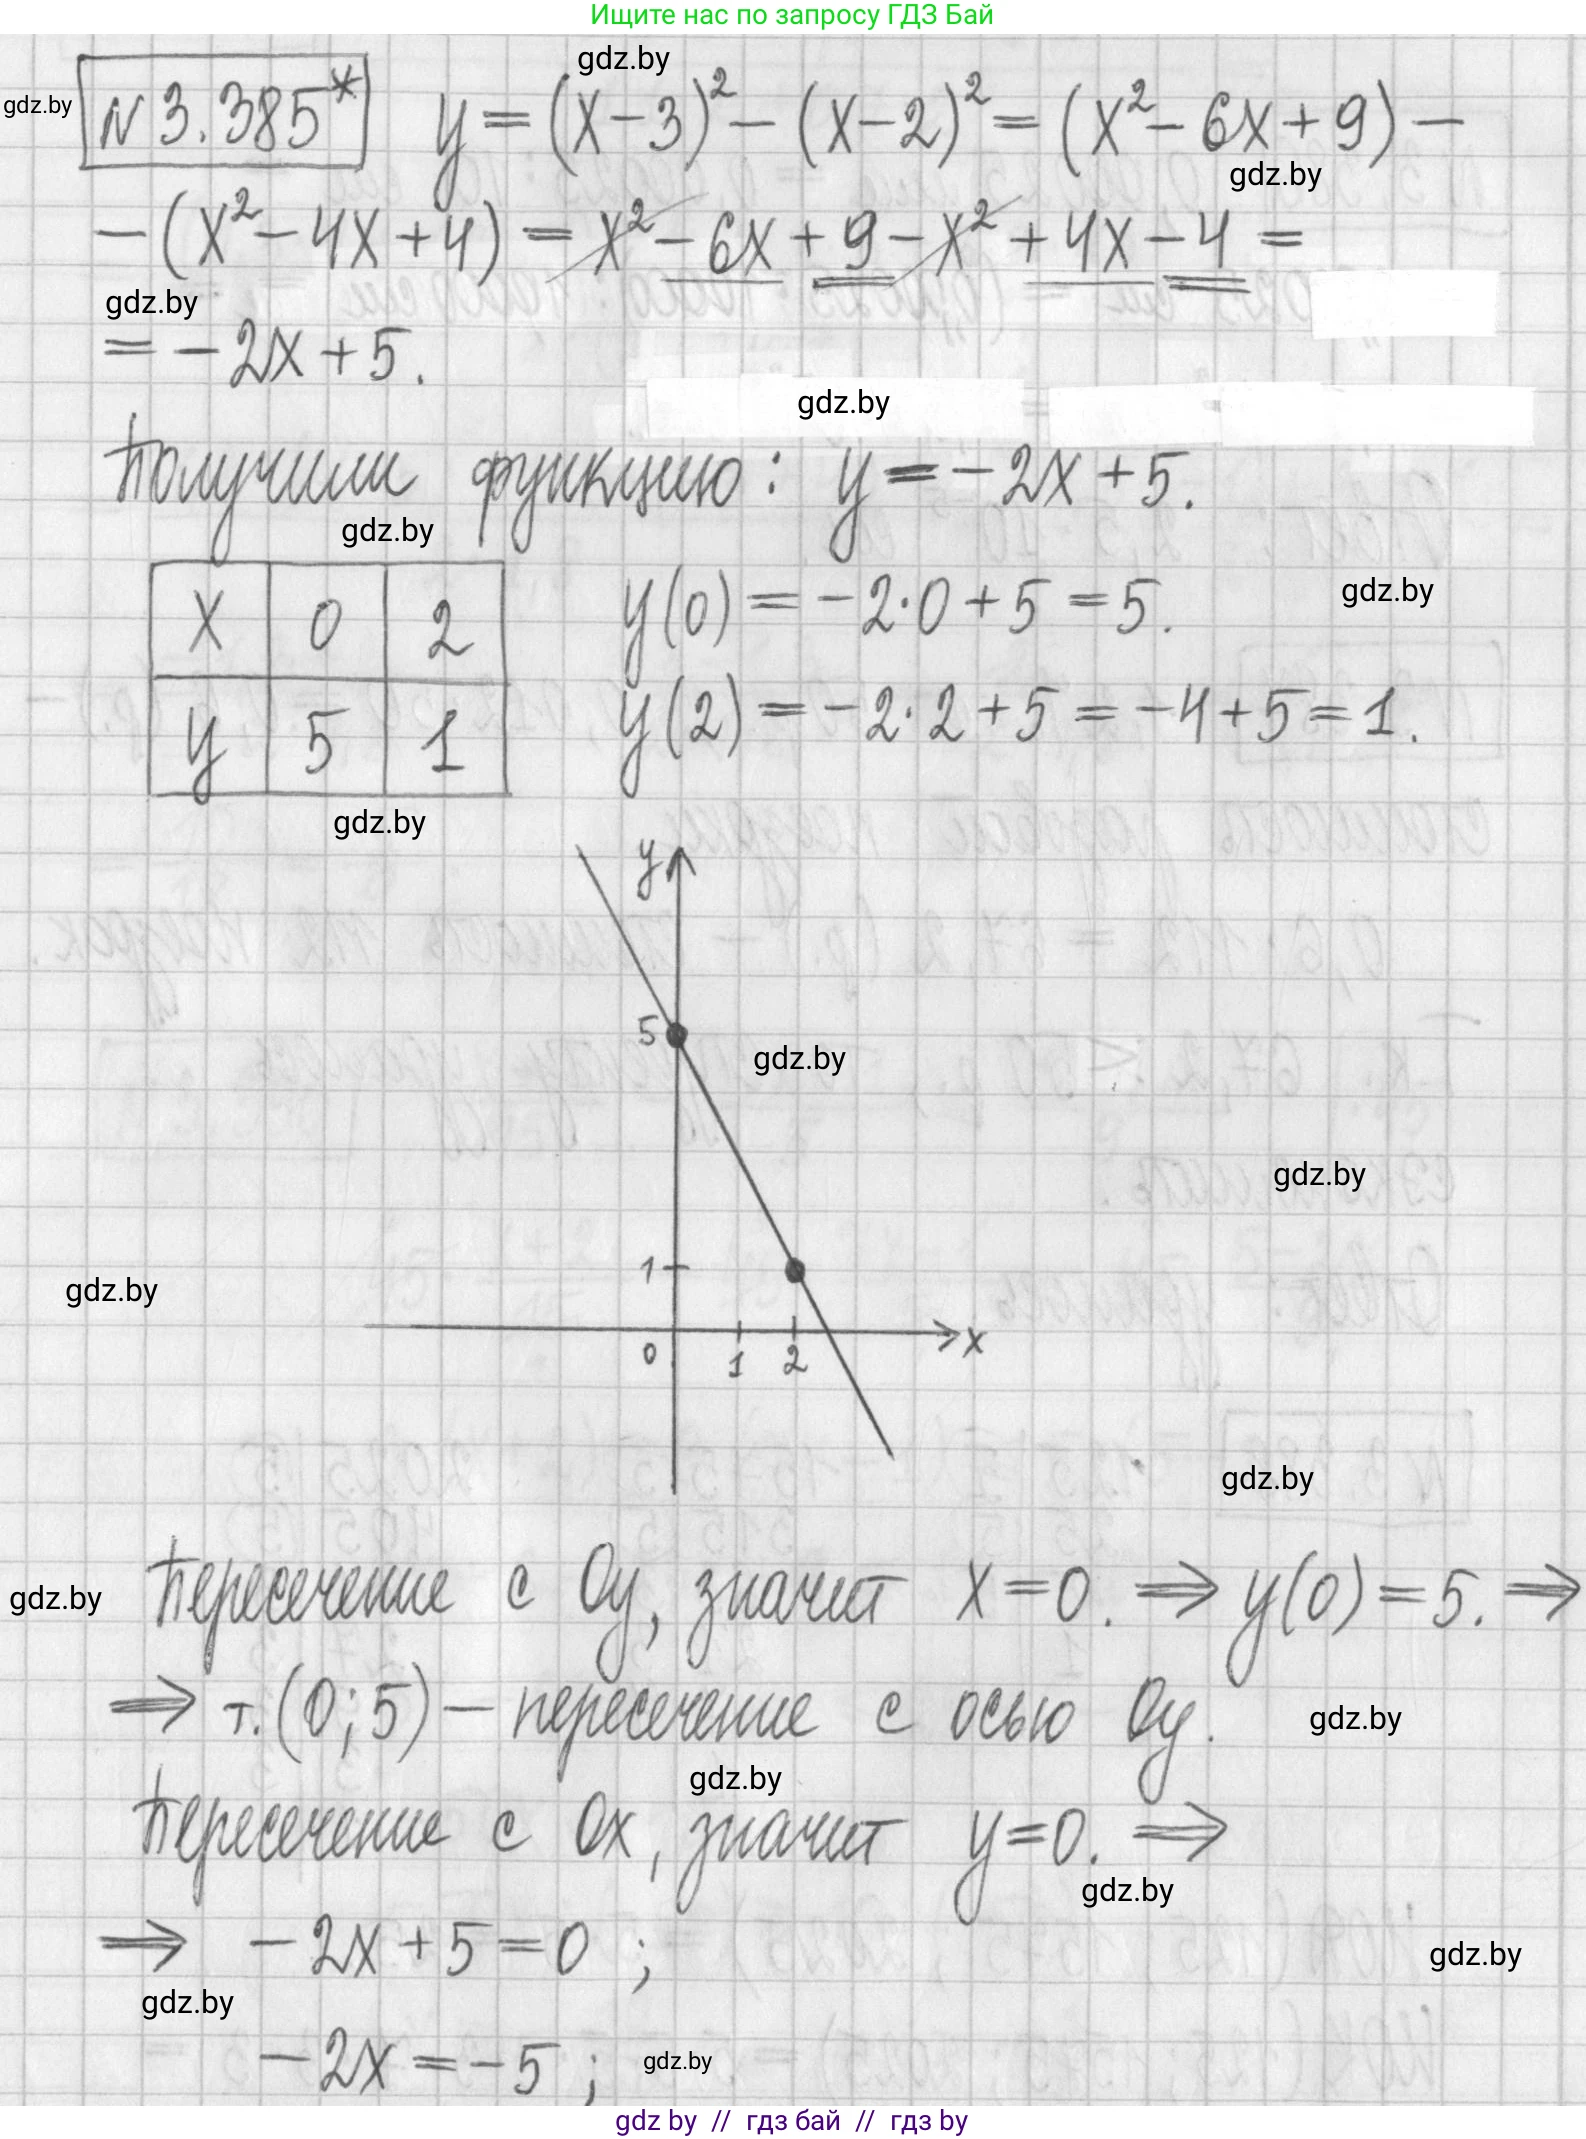 Ищите нас по запросу ГДЗ Бай
gdz.by
gdz.by
N 3.385* y = (x-3)² - (x-2)² = (x² - 6x + 9) -
gdz.by
- (x² - 4x + 4) = x² - 6x + 9 - x² + 4x - 4 =
gdz.by
= - 2x + 5.
gdz.by
Получили функцию: y = - 2x + 5.
gdz.by
x 0 2
y(0) = - 2·0 + 5 = 5.
gdz.by
y 5 1
y(2) = - 2·2 + 5 = - 4 + 5 = 1.
gdz.by
y
5
gdz.by
gdz.by
1
gdz.by
0 1 2 x
gdz.by
Пересечение с Oy, значит x = 0. ⇒ y(0) = 5. ⇒
gdz.by
⇒ т. (0; 5) — пересечение с осью Oy.
gdz.by
gdz.by
Пересечение с Ox, значит y = 0. ⇒
gdz.by
⇒ - 2x + 5 = 0 ;
gdz.by
gdz.by
- 2x = - 5 ;
gdz.by
gdz by // гдз бай // gdz by